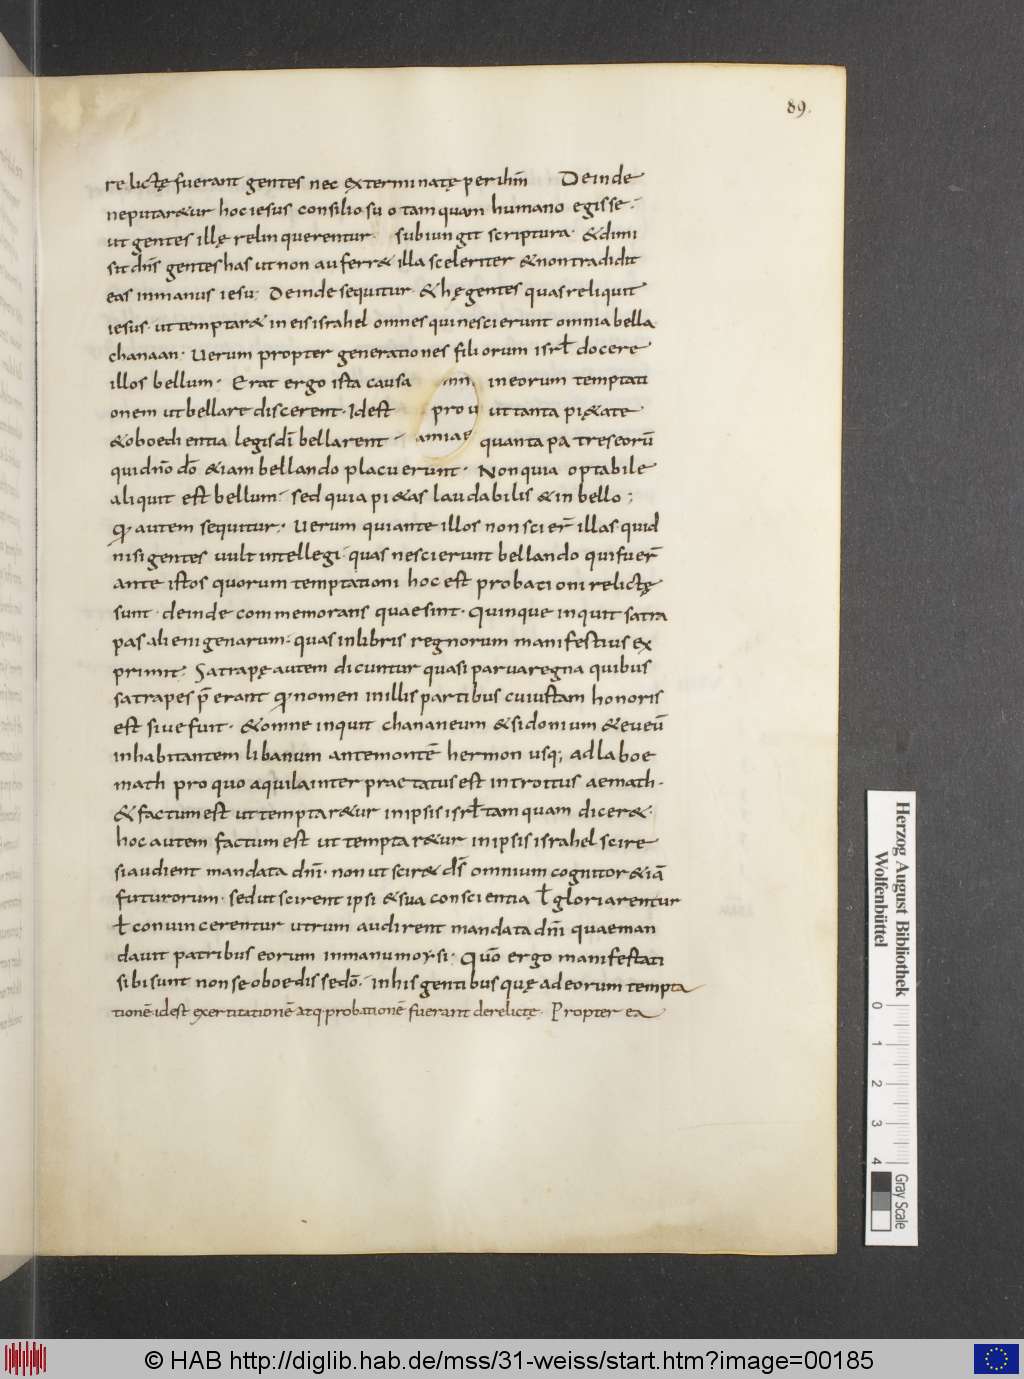 89.
relictę fuerant gentes nec exterminatę per ihm̅ Deinde
ne putar&ur hoc iesus consilio suo tamquam humano egisse.
ut gentes illę relinquerentur. subiungit scriptura. & dimi
sit dn̅s gentes has ut non auferr& illas celeriter & non tradidit
eas in manus iesu; Deinde sequitur. & hę gentes quas reliquit
iesus. ut temptar& in eis israhel omnes qui nescierunt omnia bella
chanaan. Uerum propter generationes filiorum isrł docere
illos bellum. Erat ergo ista causa in eorum temptati
onem ut bellare discerent. Id est ut tanta pi&ate
& oboedientia legis dī bellarent quanta patres eorū
qui dn̅o dō & iam bellando placuerunt. Non quia optabile
aliquit est bellum. sed quia pi&as laudabilis & in bello;
Q autem sequitur. Uerum qui ante illos non scier̅ illas quid
nisi gentes uult intellegi. quas nescierunt bellando qui fuer̅
ante istos quorum temptationi hoc est probationi relictę
sunt. deinde commemorans quae sint. Quinque inquit satra
pas alienigenarum. quas in libris regnorum manifestius ex
primit. Satrapę autem dicuntur quasi parua regna quibus
satrapes p̄erant q nomen in illis partibus cuiustam honoris
est siue fuit. & omne inquit chananeum & sidonium & eueū
inhabitantem libanum ante montē hermon usq; ad laboe
math pro quo aquila interpraetatus est introitus aemath.
& factum est ut temptar&ur in ipsis isrł tamquam dicer&.
hoc autem factum est ut temptar&ur in ipsis israhel scire
si audient mandata dn̅i. non ut scir& ds̅ omnium cognitor & iā
futurorum. sed ut scirent ipsi & sua conscientia ł gloriarentur
ł conuincerentur utrum audirent mandata dn̅i quae man
dauit patribus eorum in manu moysi. Quō ergo manifestati
sibi sunt non se oboedisse dō. in his gentibus quę ad eorum tempta
tionē id est exertitationē atq probationē fuerant derelictę. Propter ea
Herzog August Bibliothek
Wolfenbüttel
0 1 2 3 4
Gray Scale
© HAB http://diglib.hab.de/mss/31-weiss/start.htm?image=00185